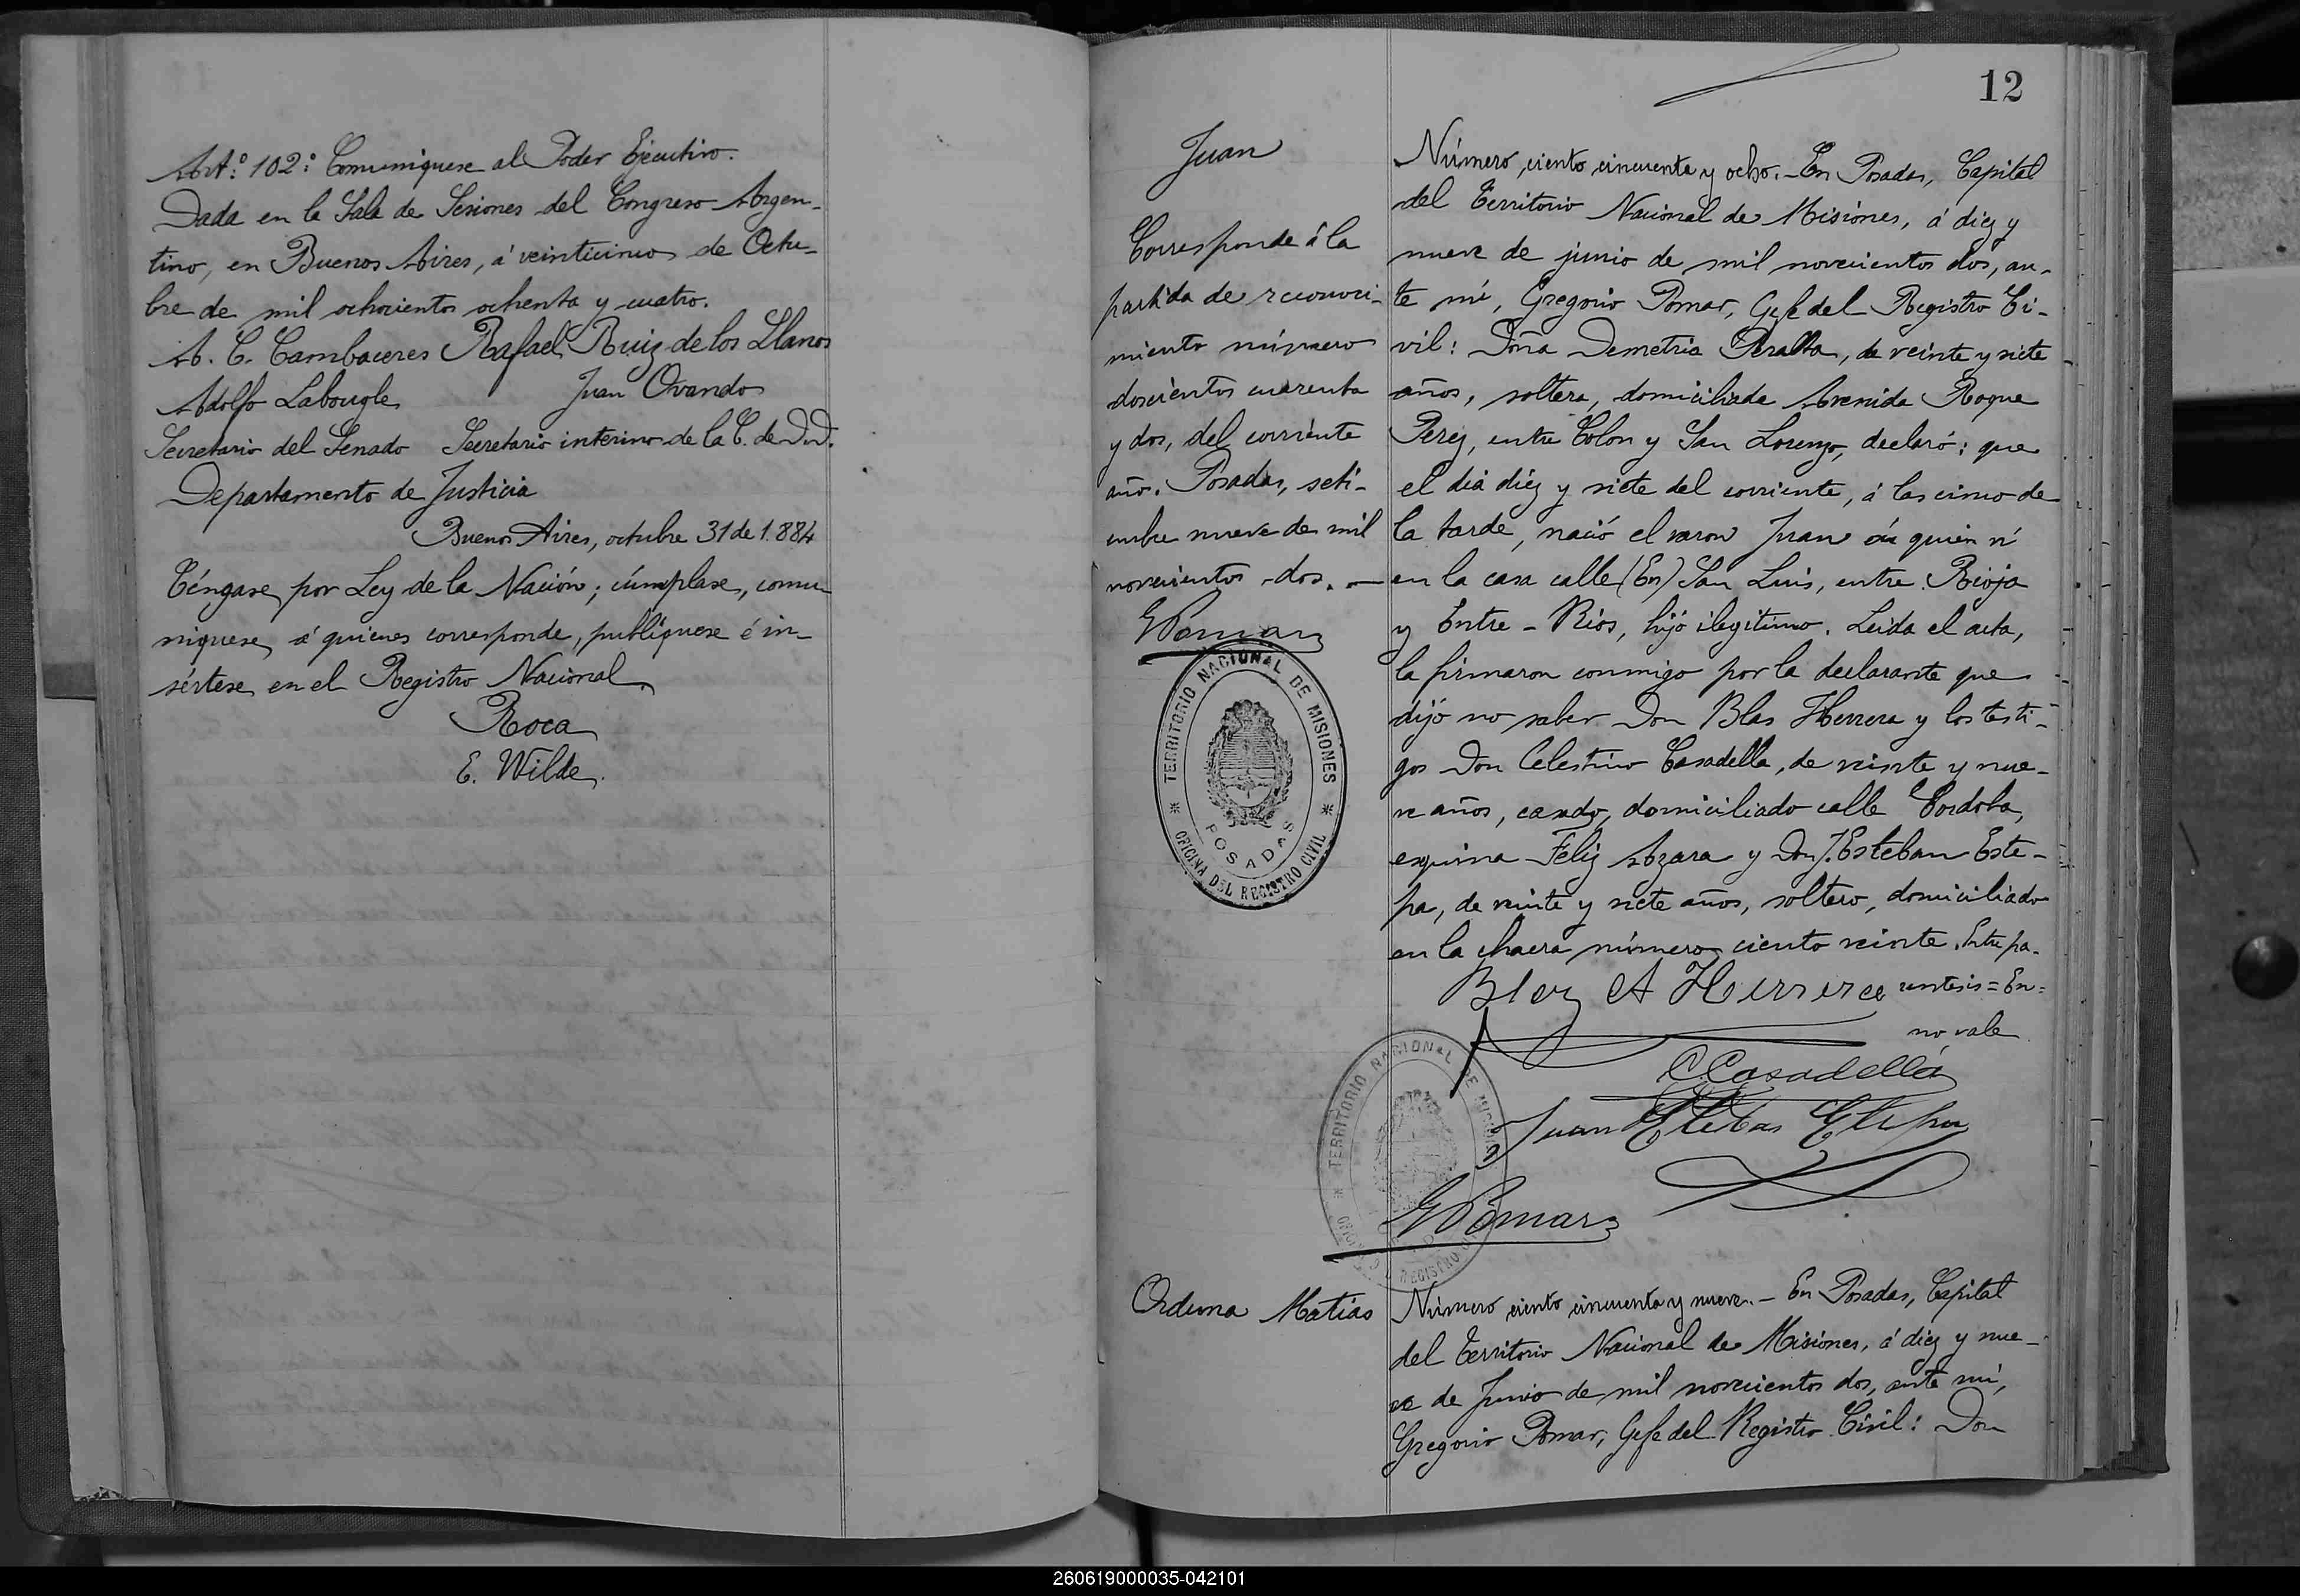 Art.º 102º Comuníquese al Poder Ejecutivo.
Dada en la Sala de Sesiones del Congreso Argen-
tino, en Buenos Aires, á veinticinco de Octu-
bre de mil ochocientos ochenta y cuatro.
A. C. Cambaceres Rafael Ruiz de los Llanos
Adolfo Labougle Juan Ovando
Secretario del Senado Secretario interino de la C. de D.D.
Departamento de Justicia
Buenos Aires, octubre 31 de 1.884
Téngase por Ley de la Nación; cúmplase, comu-
níquese á quienes corresponde, publíquese é in-
sértese en el Registro Nacional.
Roca
E. Wilde.
12
Juan
Corresponde á la
partida de reconoci-
miento número
doscientos cuarenta
y dos, del corriente
año. Posadas, seti-
embre nueve de mil
novecientos dos.—
GPomar
TERRITORIO NACIONAL DE MISIONES
POSADAS
OFICINA DEL REGISTRO CIVIL
Número ciento cincuenta y ocho.- En Posadas, Capital
del Territorio Nacional de Misiones, á diez y
nueve de junio de mil novecientos dos, an-
te mí, Gregorio Pomar, Gefe del Registro Ci-
vil: Doña Demetria Peralta, de veinte y siete
años, soltera, domiciliada Avenida Roque
Perez, entre Colon y San Lorenzo, declaró: que
el dia diez y siete del corriente, á las cinco de
la tarde, nació el varon Juan á quien ví
en la casa calle (En) San Luis, entre Rioja
y Entre-Rios, hijo ilegitimo. Leida el acta,
la firmaron conmigo por la declarante que
dijo no saber Don Blas Herrera y los testi-
gos Don Celestino Casadella, de veinte y nue-
ve años, casado, domiciliado calle Cordoba,
esquina Feliz Azara y Don J. Esteban Este-
pa, de veinte y siete años, soltero, domiciliado
en la chacra número ciento veinte. Entre pa-
rentesis = En =
no vale
Blas A Herrera
C Casadellá
Juan Esteban Estepa
TERRITORIO NACIONAL DE MISIONES
REGISTRO
GPomar
Orduna Matías
Número ciento cincuenta y nueve.- En Posadas, Capital
del Territorio Nacional de Misiones, á diez y nue-
ve de Junio de mil novecientos dos, ante mí,
Gregorio Pomar, Gefe del Registro Civil: Don
260619000035-042101